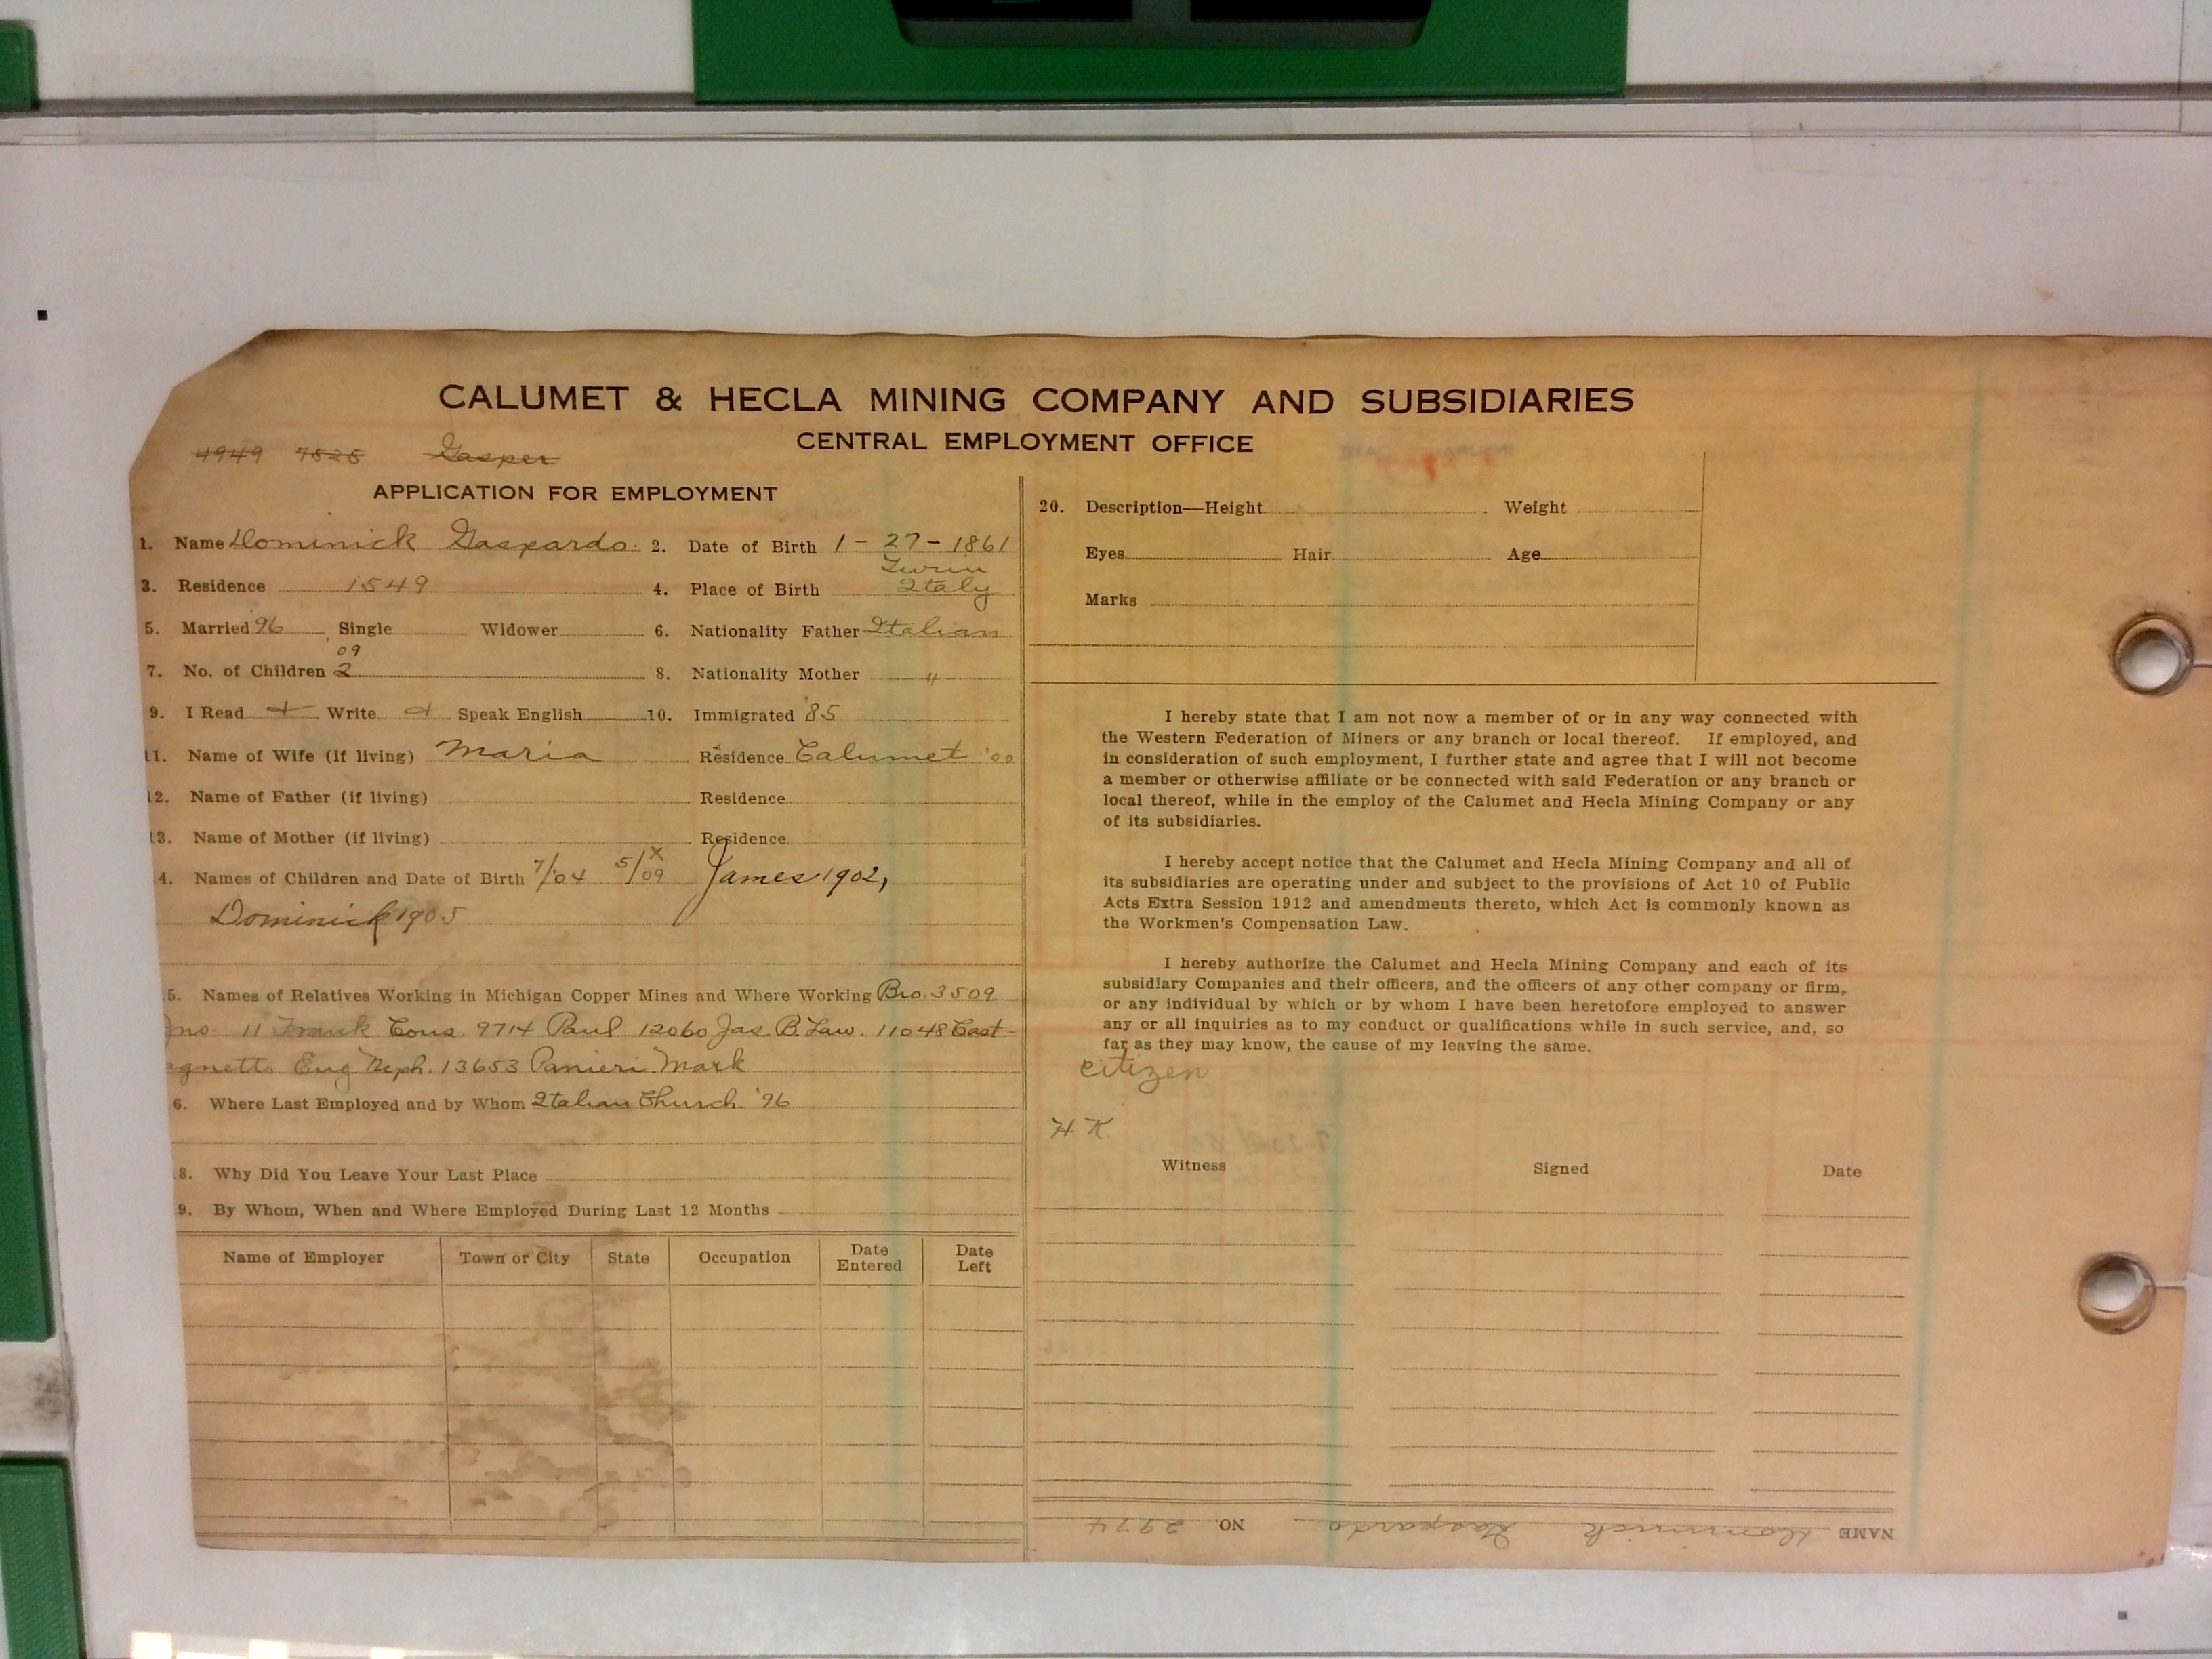 CALUMET & HECLA MINING COMPANY AND SUBSIDIARIES
CENTRAL EMPLOYMENT OFFICE
4949 7525 Gasper
APPLICATION FOR EMPLOYMENT
1. Name Dominick Gaspardo. 2. Date of Birth 1-27-1861
Turin
3. Residence 1549 4. Place of Birth Italy
5. Married 96 Single Widower 6. Nationality Father Italian
09
7. No. of Children 2 8. Nationality Mother "
9. I Read + Write + Speak English 10. Immigrated '85
11. Name of Wife (if living) Maria Residence Calumet '00
12. Name of Father (if living) Residence
13. Name of Mother (if living) Residence
4. Names of Children and Date of Birth 7/04 5/09 X James 1902,
Dominick 1905
5. Names of Relatives Working in Michigan Copper Mines and Where Working Bro. 3509
Jno. 11 Frank Cous. 9714 Paul 12060 Jas B. Law. 11048 Cast-
agnetto Eug Neph. 13653 Panieri Mark
6. Where Last Employed and by Whom Italian Church '96
8. Why Did You Leave Your Last Place
9. By Whom, When and Where Employed During Last 12 Months
Name of Employer Town or City State Occupation Date Entered Date Left
20. Description—Height Weight
Eyes Hair Age
Marks
I hereby state that I am not now a member of or in any way connected with
the Western Federation of Miners or any branch or local thereof. If employed, and
in consideration of such employment, I further state and agree that I will not become
a member or otherwise affiliate or be connected with said Federation or any branch or
local thereof, while in the employ of the Calumet and Hecla Mining Company or any
of its subsidiaries.
I hereby accept notice that the Calumet and Hecla Mining Company and all of
its subsidiaries are operating under and subject to the provisions of Act 10 of Public
Acts Extra Session 1912 and amendments thereto, which Act is commonly known as
the Workmen's Compensation Law.
I hereby authorize the Calumet and Hecla Mining Company and each of its
subsidiary Companies and their officers, and the officers of any other company or firm,
or any individual by which or by whom I have been heretofore employed to answer
any or all inquiries as to my conduct or qualifications while in such service, and, so
far as they may know, the cause of my leaving the same.
citizen
H. K.
Witness Signed Date
NAME Dominick Gaspardo NO. 2974